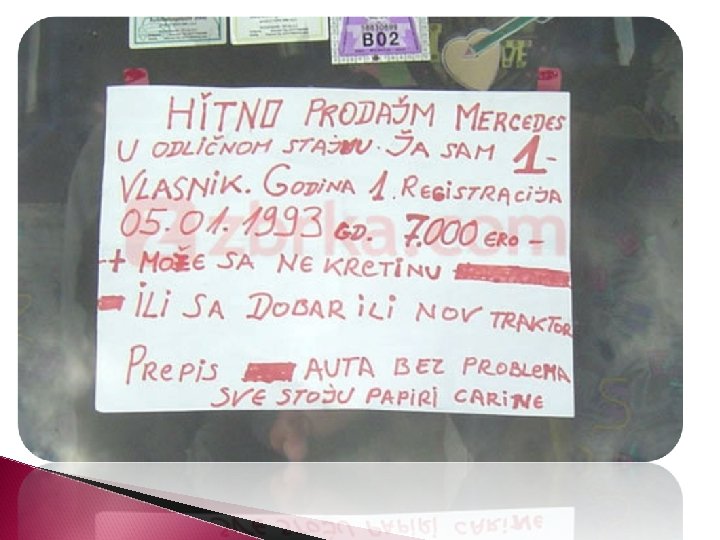 B02
HITNO PRODAJM MERCEDES
U ODLIČNOM STAJNU. JA SAM 1-
VLASNIK. GODINA 1. REGISTRACIJA
05.01.1993 GD. 7.000 ERO -
+ MOŽE SA NEKRETINU
ILI SA DOBAR ILI NOV TRAKTOR
PREPIS AUTA BEZ PROBLEMA
SVE STOJU PAPIRI CARINE
zbrka.com